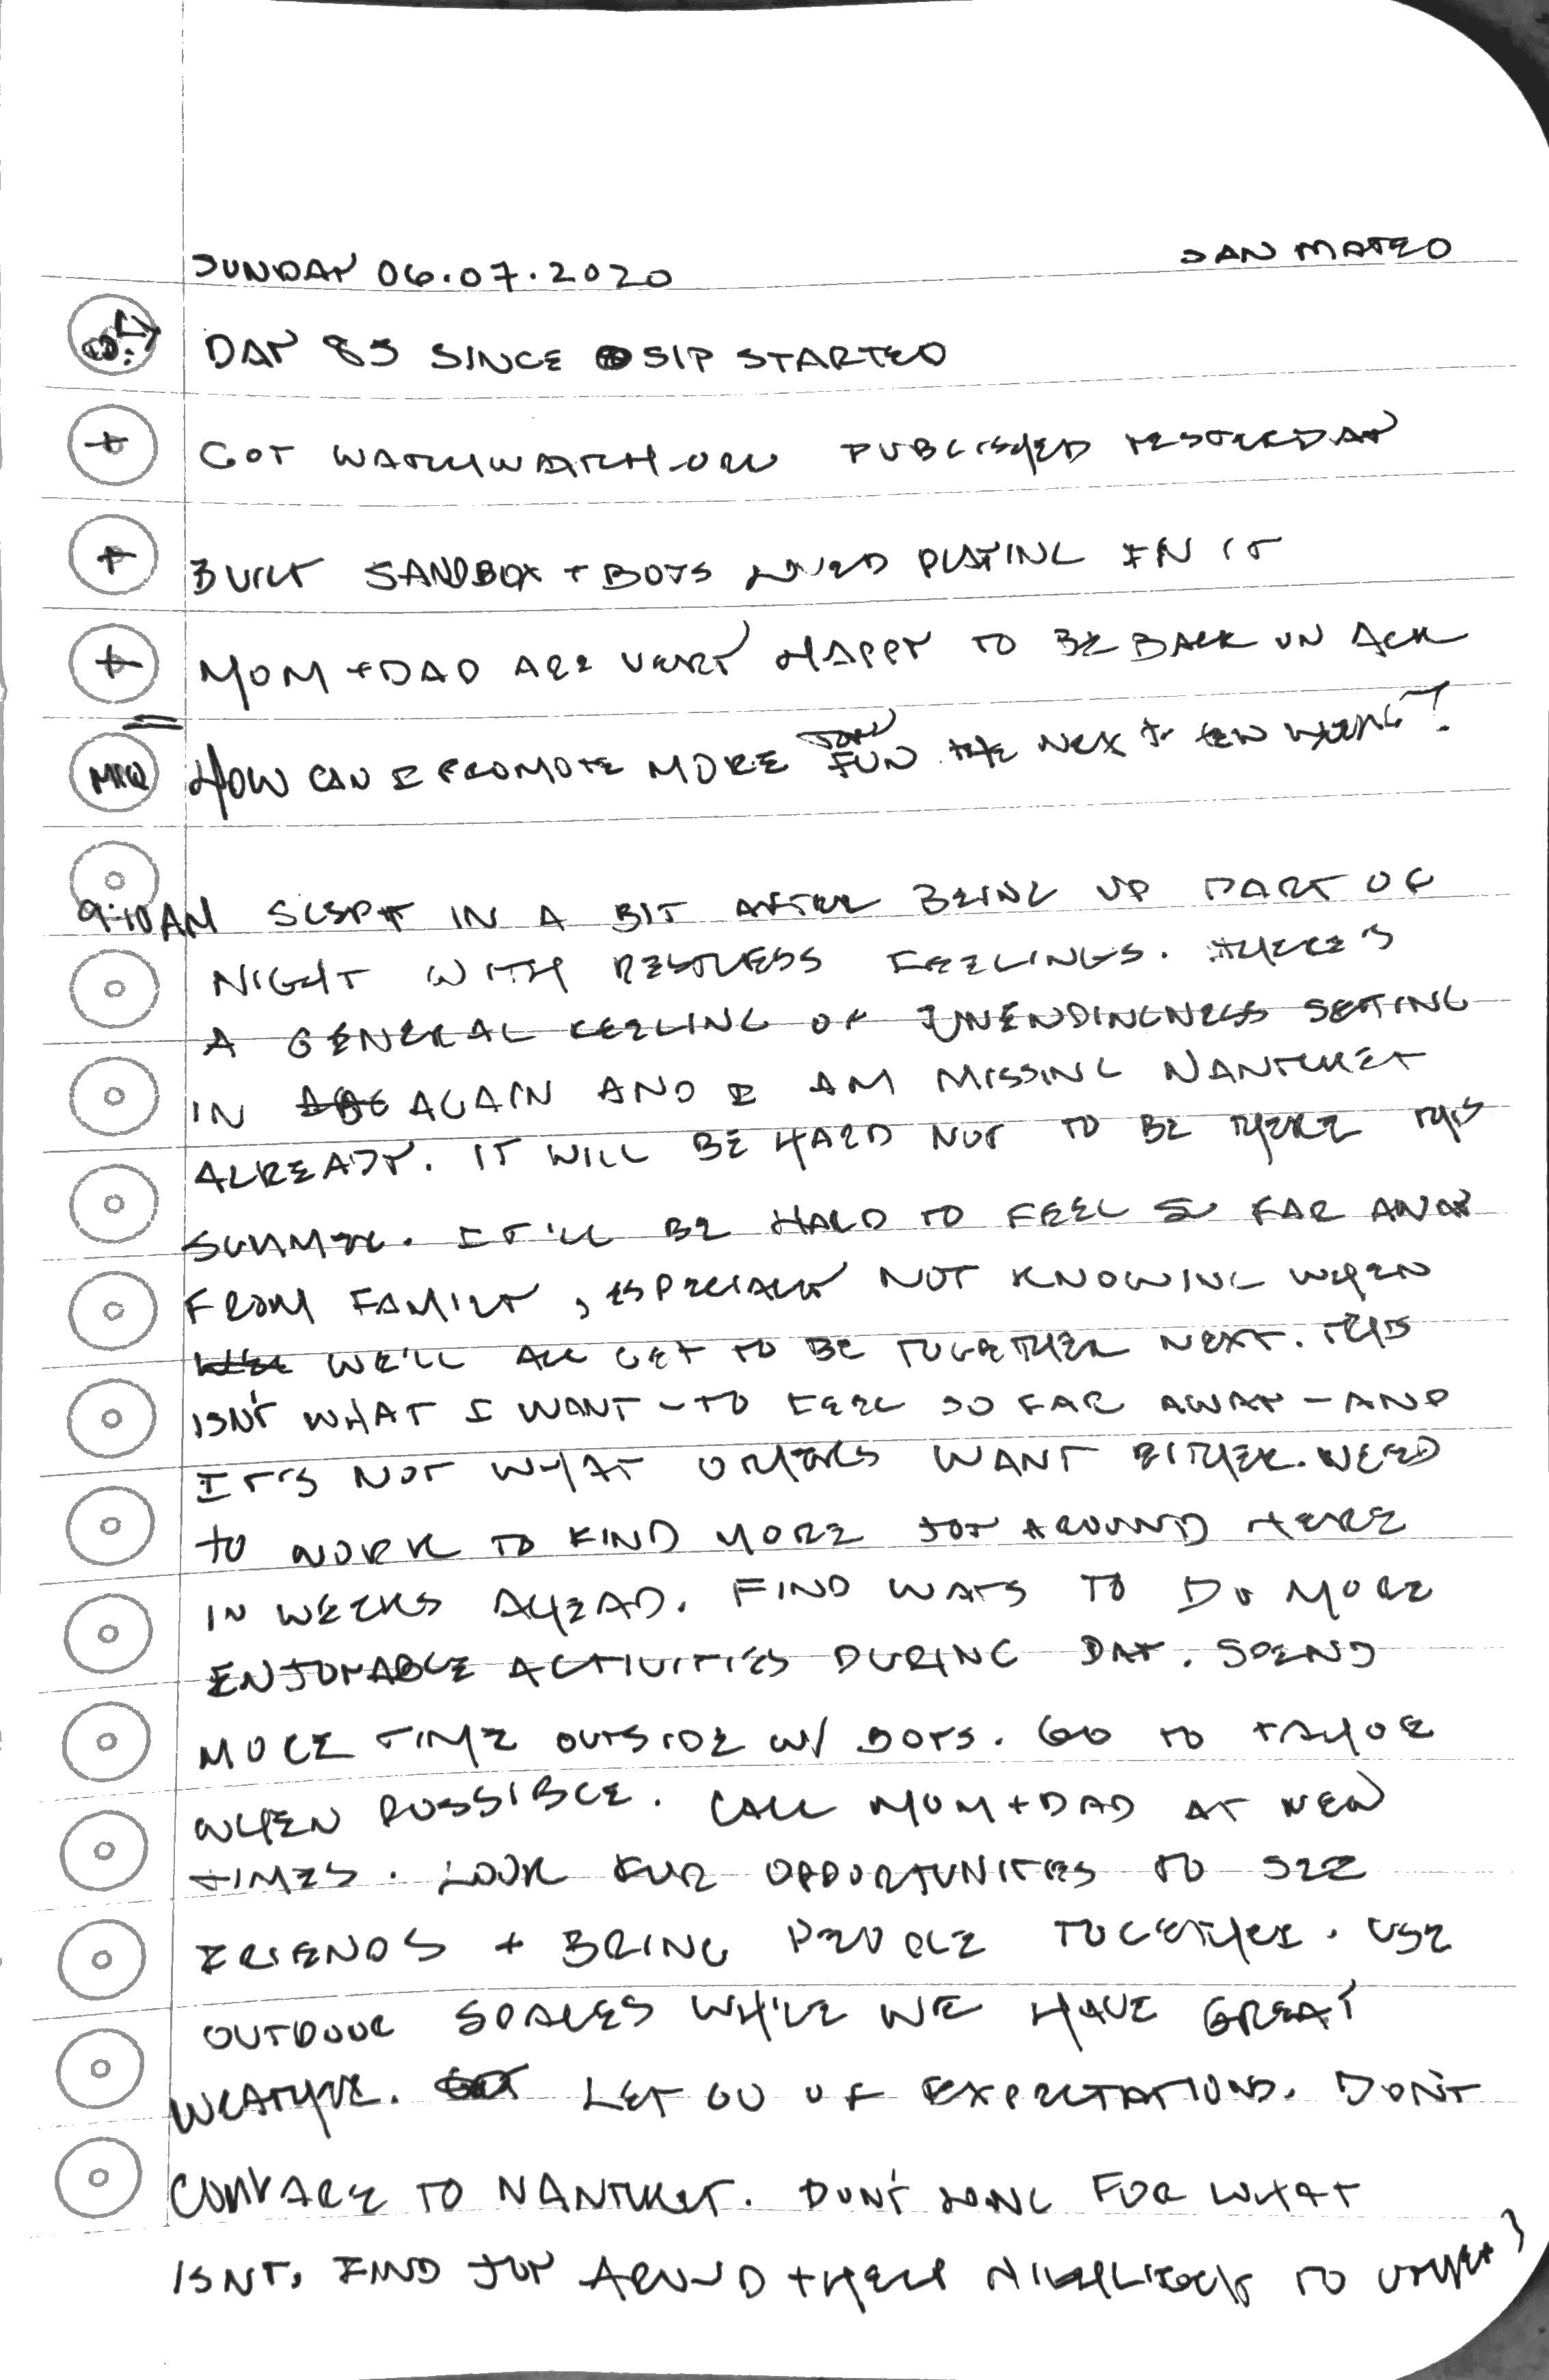 SUNDAY 06.07.2020
SAN MATEO
DAY 85 SINCE SIP STARTED
+ GOT WATCHWATCH PUBLISHED YESTERDAY
+ BUILT SANDBOX + BOYS LOVED PLAYING IN IT
+ MOM + DAD ARE VERY HAPPY TO BE BACK ON ACK
JOY
HOW CAN I PROMOTE MORE FUN THE NEXT FEW WEEKS?
9:10AM SLEPT IN A BIT AFTER BEING UP PART OF
NIGHT WITH RESTLESS FEELINGS. THERE'S
A GENERAL FEELING OF UNENDINGNESS SETTING
IN AGAIN AND I AM MISSING NANTUCKET
ALREADY. IT WILL BE HARD NOT TO BE THERE THIS
SUMMER. IT'LL BE HARD TO FEEL SO FAR AWAY
FROM FAMILY, ESPECIALLY NOT KNOWING WHEN
WE'LL WE'LL ALL GET TO BE TOGETHER NEXT. THIS
ISN'T WHAT I WANT - TO FEEL SO FAR AWAY - AND
IT'S NOT WHAT OTHERS WANT EITHER. NEED
TO WORK TO FIND MORE JOY AROUND HERE
IN WEEKS AHEAD. FIND WAYS TO DO MORE
ENJOYABLE ACTIVITIES DURING DAY. SPEND
MORE TIME OUTSIDE W/ BOYS. GO TO TAHOE
WHEN POSSIBLE. CALL MOM + DAD AT NEW
TIMES. LOOK FOR OPPORTUNITIES TO SEE
FRIENDS + BRING PEOPLE TOGETHER. USE
OUTDOOR SPACES WHILE WE HAVE GREAT
WEATHER. LET GO OF EXPECTATIONS. DON'T
COMPARE TO NANTUCKET. DON'T LONG FOR WHAT
ISN'T. FIND JOY AROUND + HELP HIGHLIGHT TO